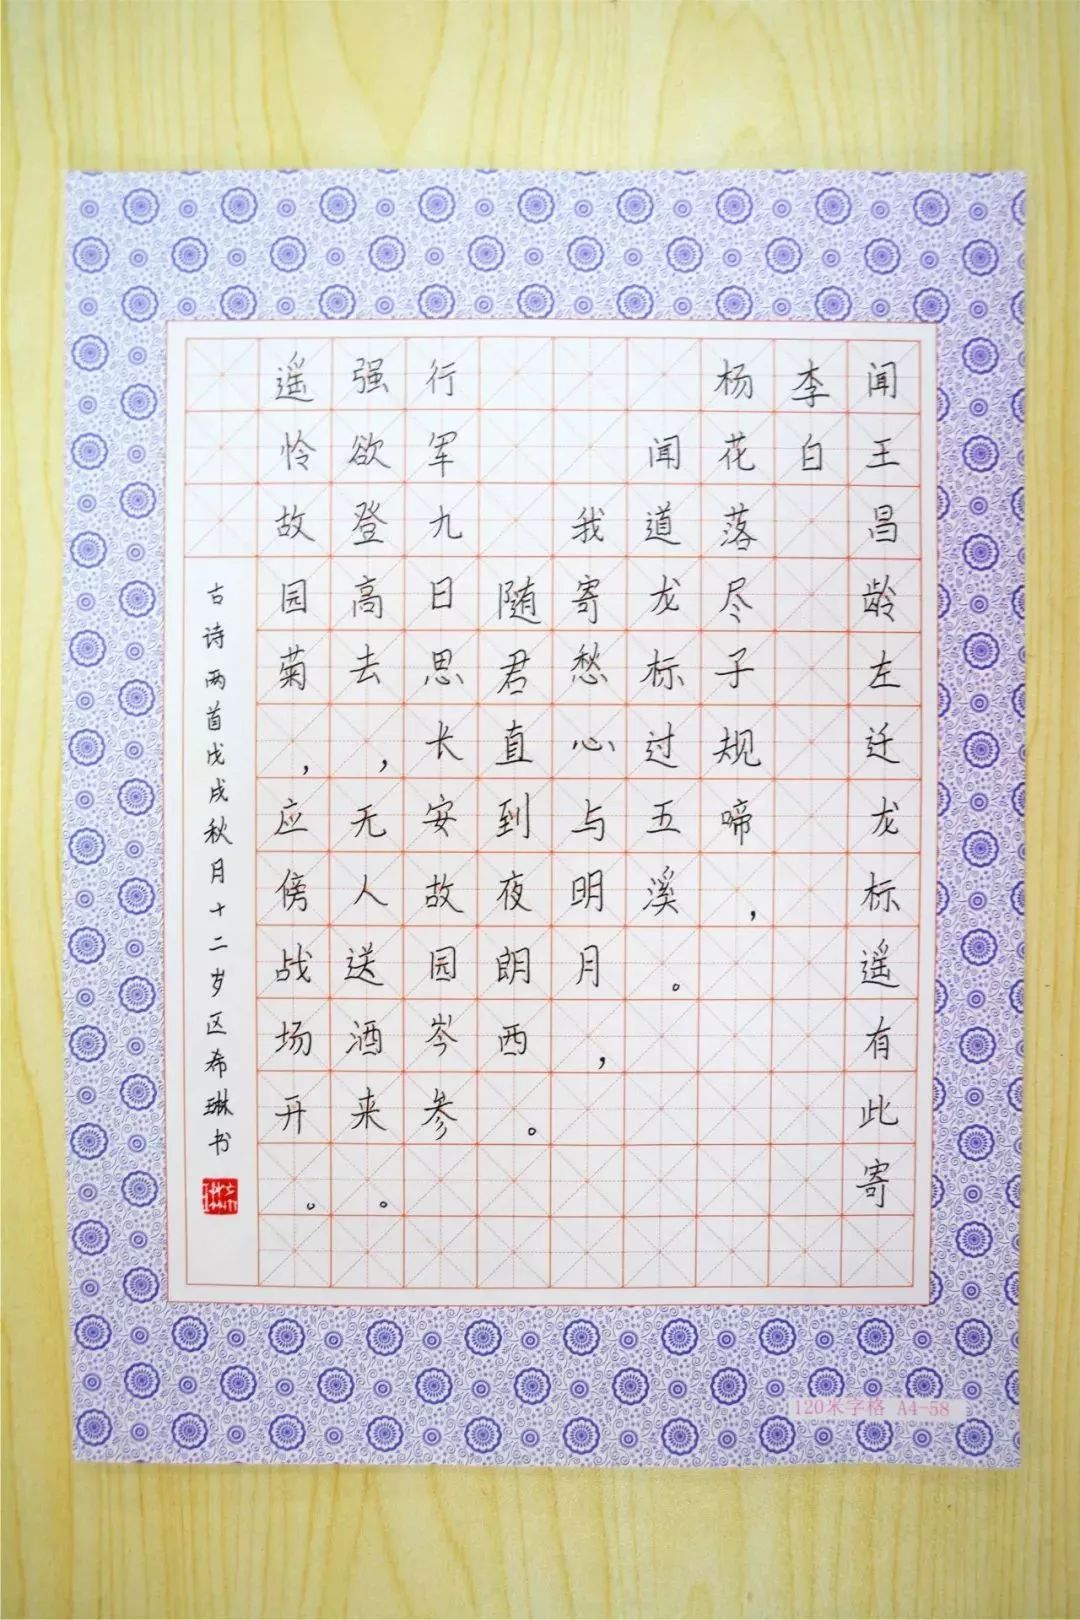 闻王昌龄左迁龙标遥有此寄
李白
杨花落尽子规啼，
闻道龙标过五溪。
我寄愁心与明月，
随君直到夜朗西。
行军九日思长安故园岑参
强欲登高去，无人送酒来。
遥怜故园菊，应傍战场开。
古诗两首戊戌秋月十二岁区希琳书
120米字格 A4-58